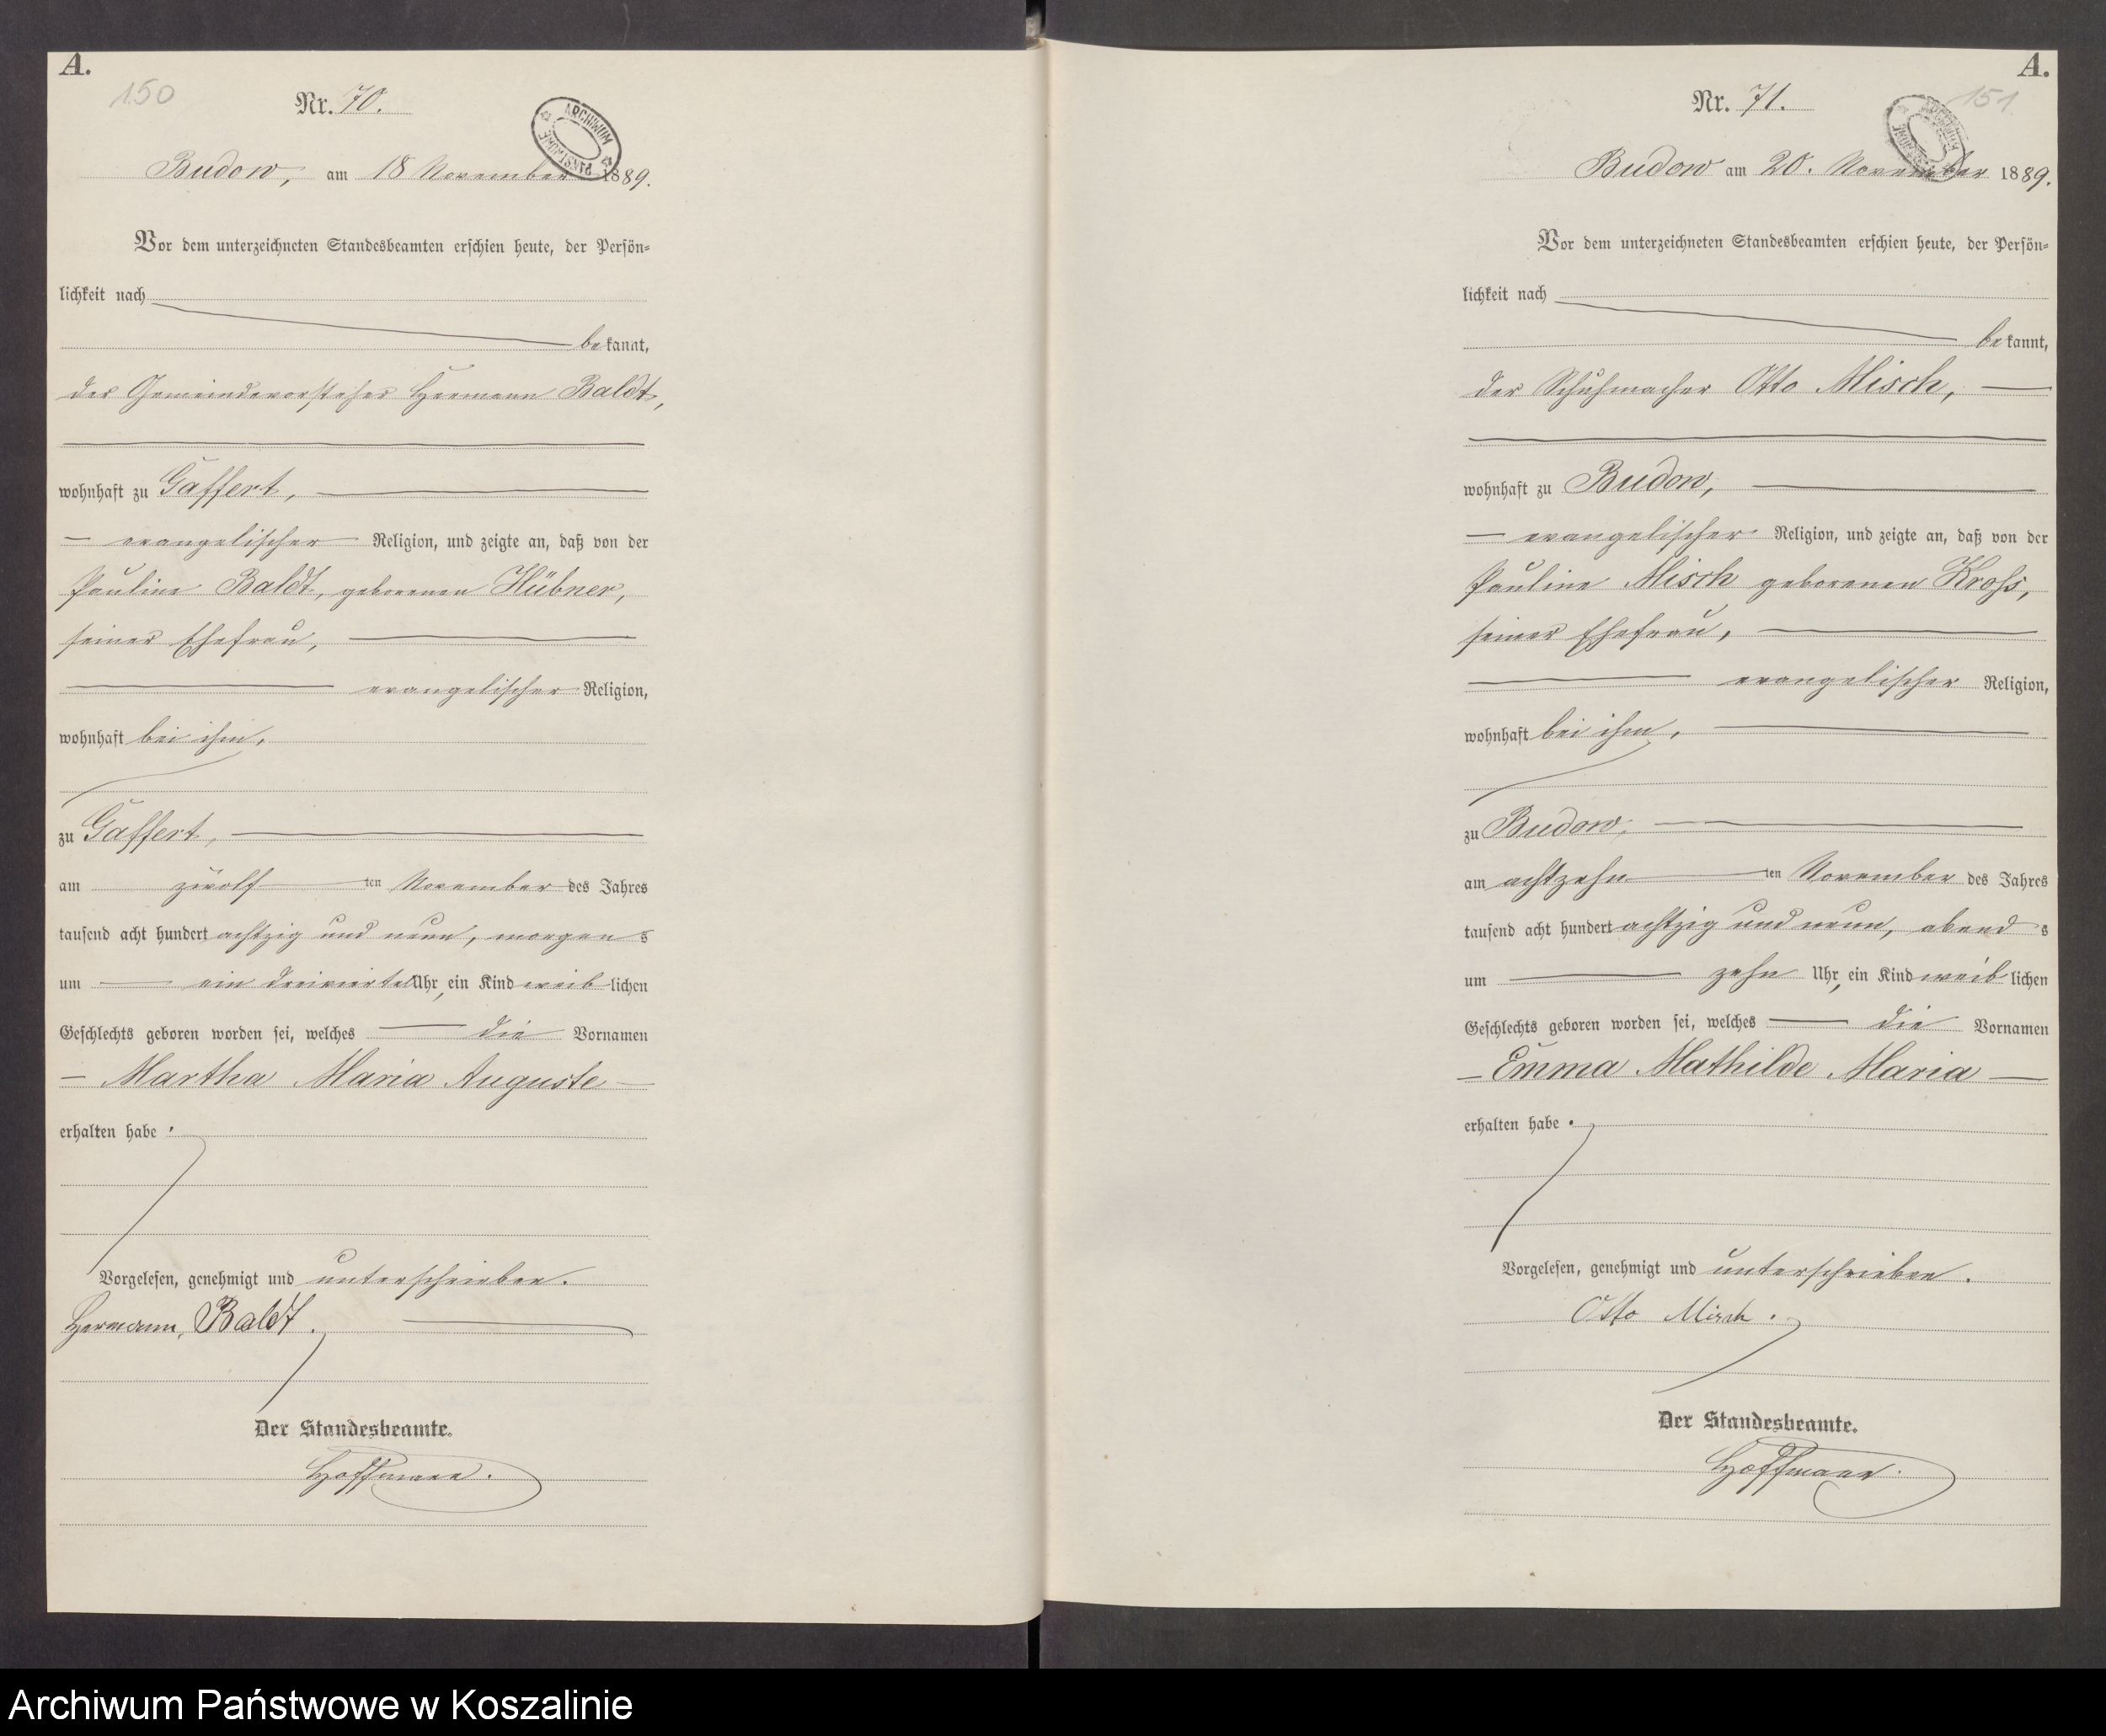 A.
150
Nr. 70.
ARCHIWUM PAŃSTWOWE
Budow, am 18 November 1889.
Vor dem unterzeichneten Standesbeamten erschien heute, der Persön-
lichkeit nach
bekannt,
der Gemeindevorsteher Hermann Baldt,
wohnhaft zu Gaffert,
evangelischer Religion, und zeigte an, daß von der
Pauline Baldt, geborenen Hübner,
seiner Ehefrau,
evangelischer Religion,
wohnhaft bei ihm,
zu Gaffert,
am zwölf ten November des Jahres
tausend acht hundert achtzig und neun, morgens
um ein dreiviertel Uhr, ein Kind weiblichen
Geschlechts geboren worden sei, welches die Vornamen
Martha Maria Auguste
erhalten habe.
Vorgelesen, genehmigt und unterschrieben.
Hermann, Baldt.
Der Standesbeamte.
Hoffmann.
A.
151.
Nr. 71.
Budow am 20. November 1889.
Vor dem unterzeichneten Standesbeamten erschien heute, der Persön-
lichkeit nach
bekannt,
der Schuhmacher Otto Misch,
wohnhaft zu Budow,
evangelischer Religion, und zeigte an, daß von der
Pauline Misch geborenen Kroß,
seiner Ehefrau,
evangelischer Religion,
wohnhaft bei ihm,
zu Budow,
am achtzehn ten November des Jahres
tausend acht hundert achtzig und neun, abends
um zehn Uhr, ein Kind weiblichen
Geschlechts geboren worden sei, welches die Vornamen
Emma Mathilde Maria
erhalten habe.
Vorgelesen, genehmigt und unterschrieben.
Otto Misch.
Der Standesbeamte.
Hoffmann.
Archiwum Państwowe w Koszalinie